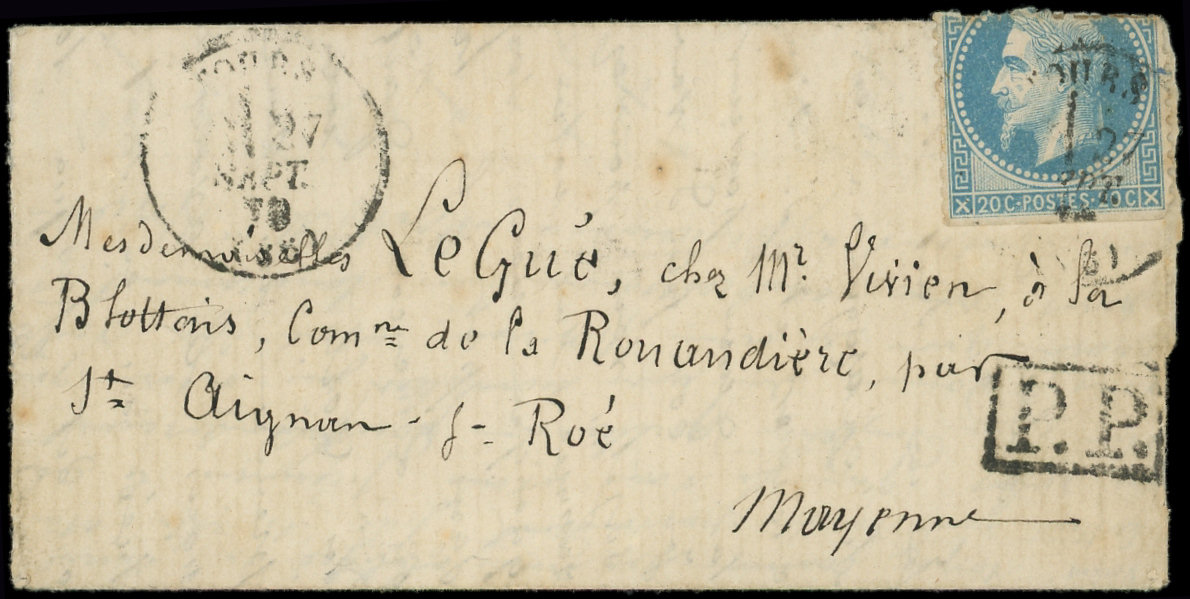 TOURS
27
SEPT.
70
TOURS
27
SEPT.
20 C·POSTES·20 C
Mesdemoiselles Le Gué, chez Mr. Vivien, à la
Blottais, Comne de la Rouaudière, par
St Aignan-s-Roé
P.P.
Mayenne